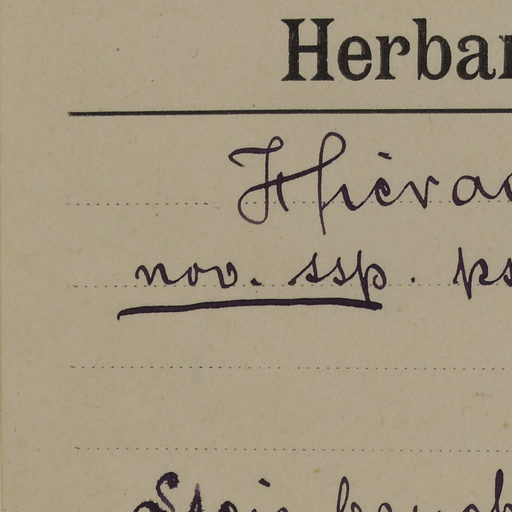 Herbar
Hierac
nov. ssp. ps
Steinbruch